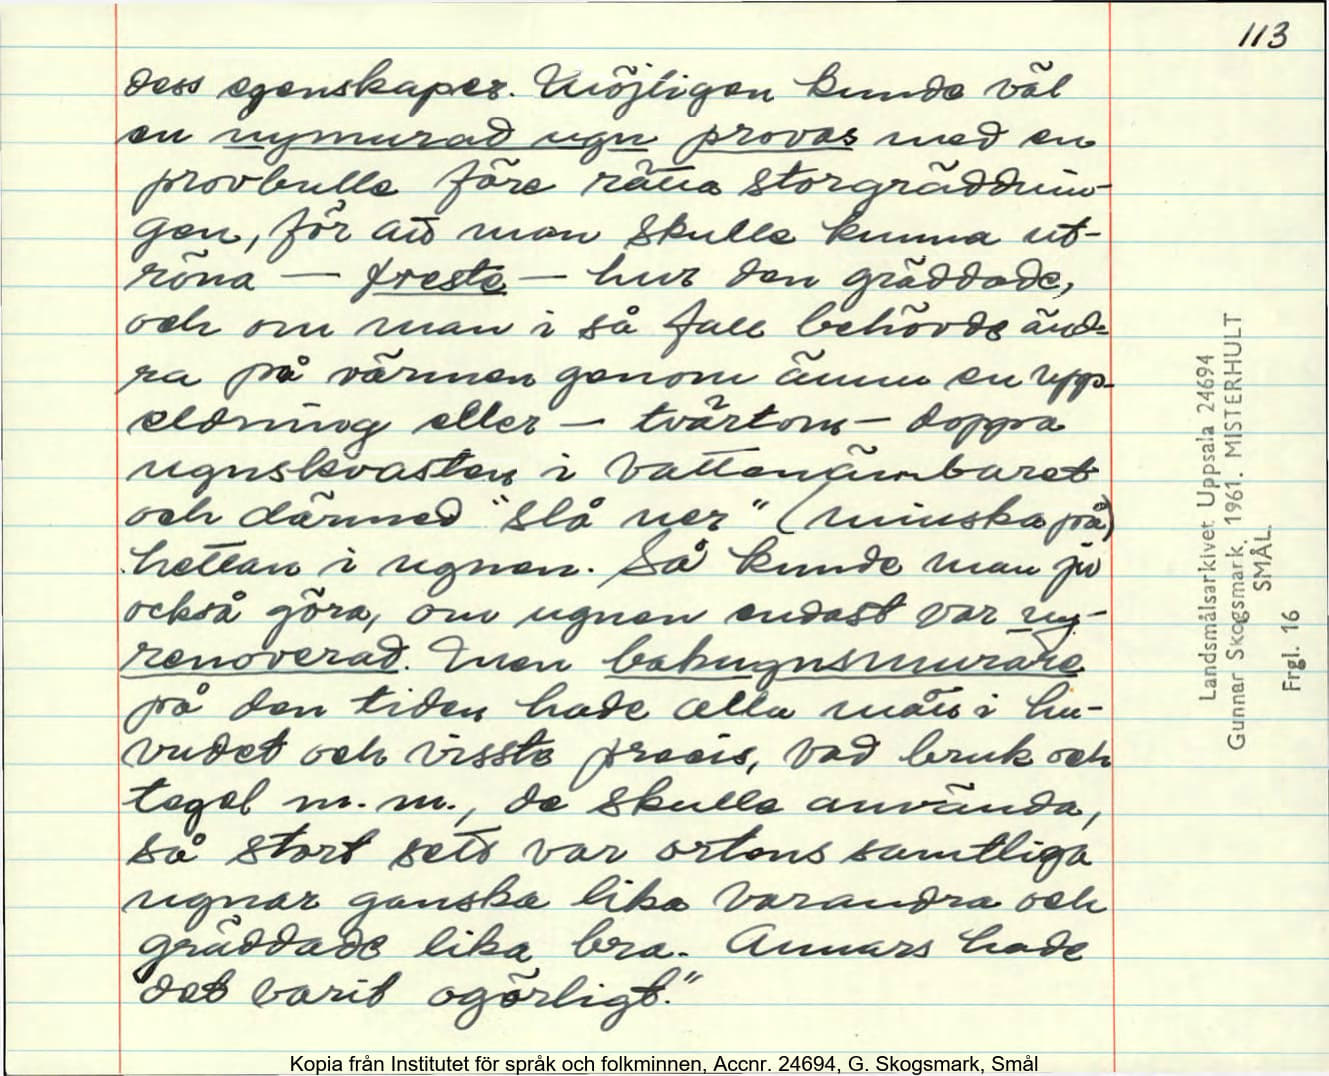 113
dess egenskaper. Möjligen kunde väl
en nymurad ugn provas med en
provbulle före rätta storgräddnin-
gen, för att man skulle kunna ut-
röna — freste — hur den gräddade,
och om man i så fall behövde änd-
ra på värmen genom ännu en upp-
eldning eller — tvärtom — doppa
ugnskvasten i vattenämbaret
och därmed "slå ner" (minska på)
hettan i ugnen. Så kunde man ju
också göra, om ugnen endast var ny-
renoverad. Men bakugnsmurare
på den tiden hade alla mått i hu-
vudet och visste precis, vad bruk och
tegel m.m., de skulle använda,
så stort sett var ortens samtliga
ugnar ganska lika varandra och
gräddade lika bra. Annars hade
det varit ogörligt."
Landsmålsarkivet Uppsala 24694
Gunnar Skogsmark. 1961. MISTERHULT
SMÅL.
Frgl. 16
Kopia från Institutet för språk och folkminnen, Accnr. 24694, G. Skogsmark, Smål